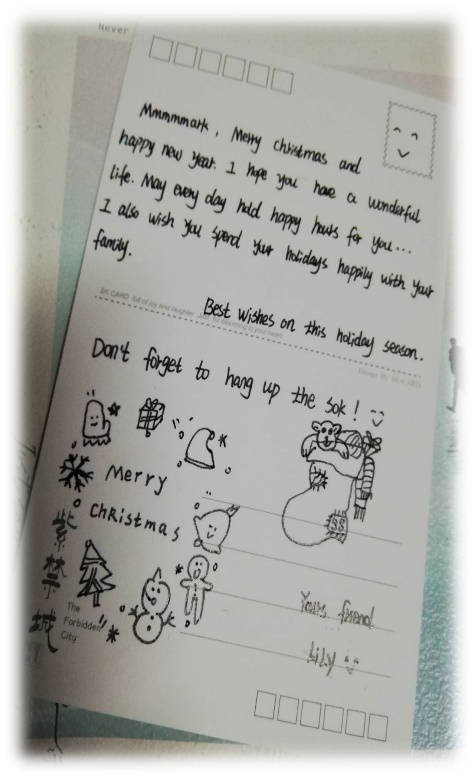 Never
Mmmmmark, Merry christmas and
happy new year. I hope you have a wonderful
life. May every day hold happy hours for you...
I also wish you spend your holidays happily with your
family.
Best wishes on this holiday season.
SK CARD full of joy and laughter
Don't forget to hang up the sok!
Merry
christmas
紫
禁
城
The
Forbidden
City
Yours friend
Lily